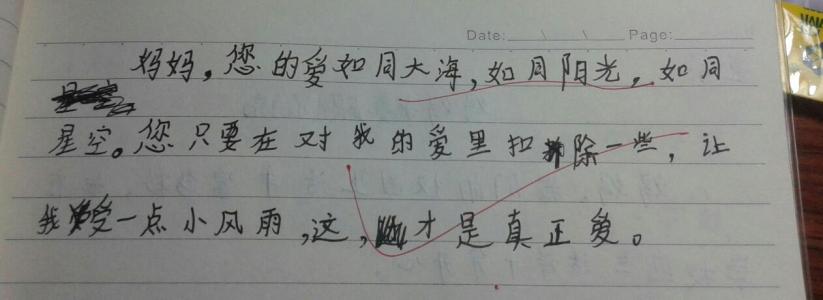 Date: \ \ Page:
妈妈，您的爱如同大海，如同阳光，如同
星空。您只要在对我的爱里扣除一些，让
我受一点小风雨，这，才是真正爱。